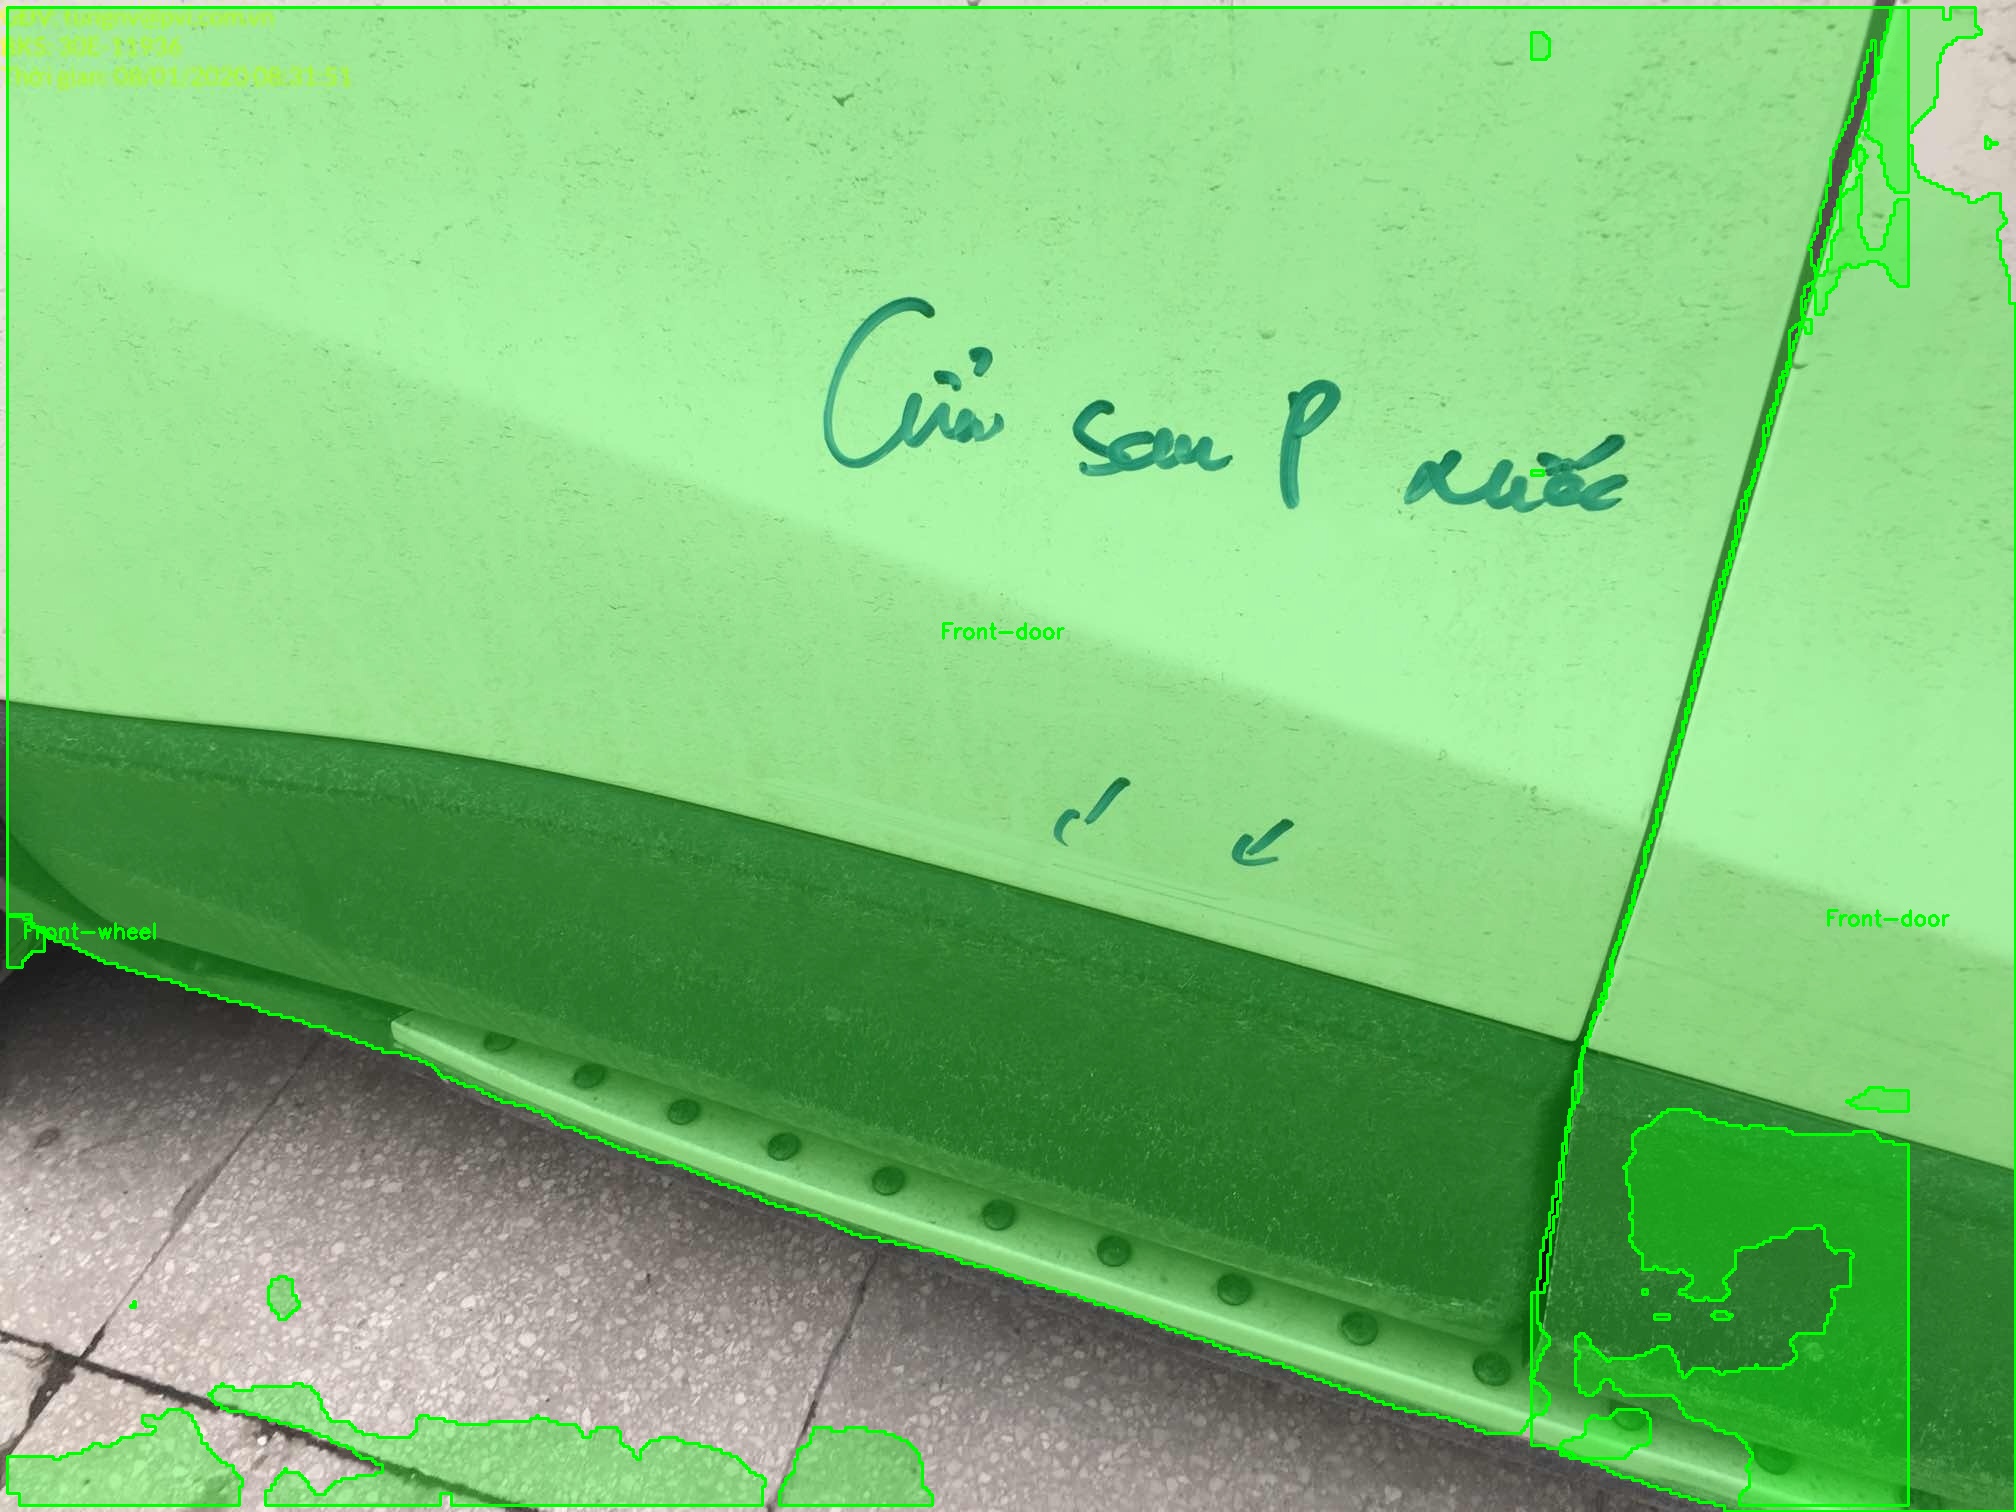 GĐV: tungnv@pvi.com.vn
BKS: 30E-11936
Thời gian: 08/01/2020 08:31:51
Cửa sau P xước
Front-door
Front-door
Front-wheel